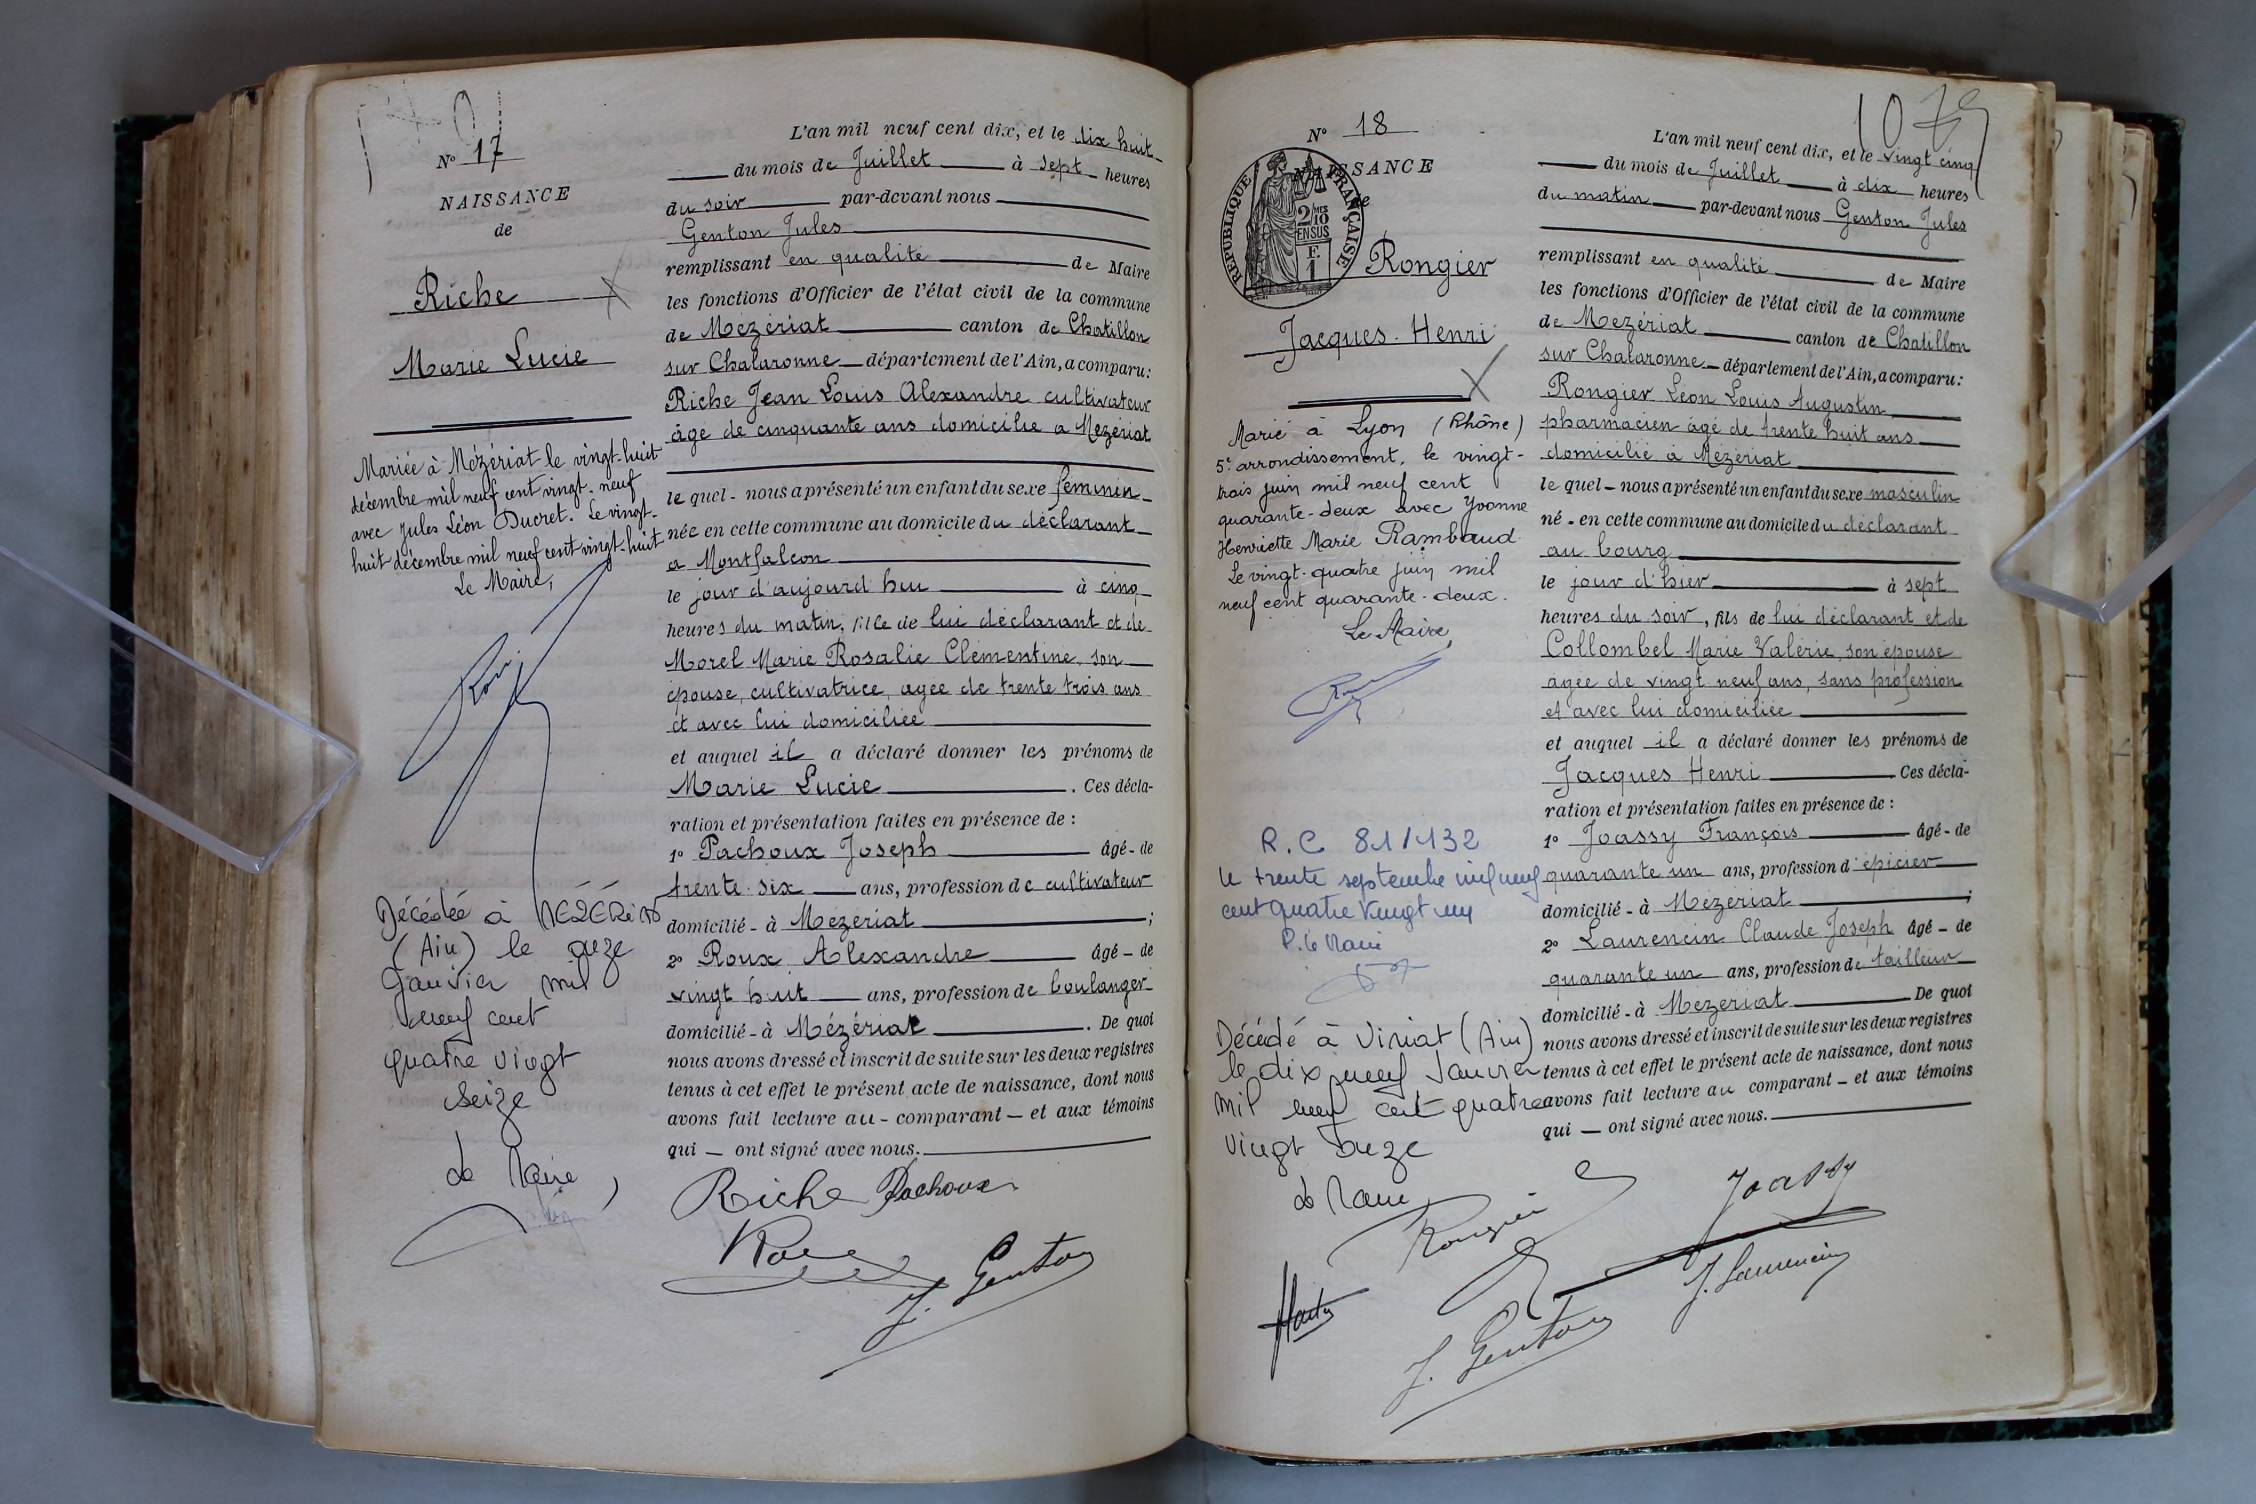 Nº 17
NAISSANCE
de
Riche
Marie Lucie
Mariée à Mézériat le vingt-huit
décembre mil neuf cent vingt-neuf
avec Jules Léon Ducret. Le vingt-
huit décembre mil neuf cent vingt-huit
Le Maire,
Décédée à MÉZÉRiAT
(Ain) le onze
Janvier mil
neuf cent
quatre vingt
seize
Le Maire,
L'an mil neuf cent dix, et le dix huit
du mois de Juillet à sept heures
du soir par-devant nous
Genton Jules
remplissant en qualité de Maire
les fonctions d'Officier de l'état civil de la commune
de Mézériat canton de Chatillon
sur Chalaronne département de l'Ain, a comparu:
Riche Jean Louis Alexandre cultivateur
âgé de cinquante ans domicilié a Mézériat
le quel - nous a présenté un enfant du sexe féminin
née en cette commune au domicile du déclarant
a Montfalcon
le jour d'aujourd hui à cinq
heures du matin, fille de lui déclarant et de
Morel Marie Rosalie Clémentine, son
épouse, cultivatrice, agée de trente trois ans
et avec lui domiciliée
et auquel il a déclaré donner les prénoms de
Marie Lucie. Ces décla-
ration et présentation faites en présence de :
1º Pachoux Joseph âgé - de
trente-six ans, profession de cultivateur
domicilié - à Mézériat ;
2º Roux Alexandre âgé - de
vingt huit ans, profession de boulanger
domicilié - à Mézériat. De quoi
nous avons dressé et inscrit de suite sur les deux registres
tenus à cet effet le présent acte de naissance, dont nous
avons fait lecture au - comparant - et aux témoins
qui - ont signé avec nous.
Riche Pachoux
Roux
J. Genton
1075
Nº 18
NAISSANCE
de
RÉPUBLIQUE FRANÇAISE
2/10
MES
EN SUS
E.
1
Rongier
Jacques-Henri
Marié à Lyon (Rhône)
5e arrondissement, le vingt-
trois juin mil neuf cent
quarante-deux avec Yvonne
Henriette Marie Rambaud
Le vingt-quatre juin mil
neuf cent quarante-deux.
Le Maire,
R.C 81/132
le trente septembre mil neuf
cent quatre vingt un
P. le Maire
Décédé à Viriat (Ain)
le dix neuf Janvier
mil neuf cent quatre
vingt onze
Le Maire
L'an mil neuf cent dix, et le vingt cinq
du mois de Juillet à dix heures
du matin par-devant nous Genton Jules
remplissant en qualité de Maire
les fonctions d'Officier de l'état civil de la commune
de Mézériat canton de Chatillon
sur Chalaronne département de l'Ain, a comparu:
Rongier Léon Louis Augustin
pharmacien âgé de trente huit ans
domicilié à Mézériat
le quel - nous a présenté un enfant du sexe masculin
né - en cette commune au domicile du déclarant
au bourg
le jour d'hier à sept
heures du soir, fils de lui déclarant et de
Collombel Marie Valérie, son épouse
agée de vingt neuf ans, sans profession
et avec lui domiciliée
et auquel il a déclaré donner les prénoms de
Jacques Henri Ces décla-
ration et présentation faites en présence de :
1º Joassy François âgé - de
quarante un ans, profession d'épicier
domicilié - à Mézériat ;
2º Laurencin Claude Joseph âgé - de
quarante un ans, profession de tailleur
domicilié - à Mézériat De quoi
nous avons dressé et inscrit de suite sur les deux registres
tenus à cet effet le présent acte de naissance, dont nous
avons fait lecture au comparant - et aux témoins
qui - ont signé avec nous.
Rongier
Joassy
J. Laurencin
J. Genton